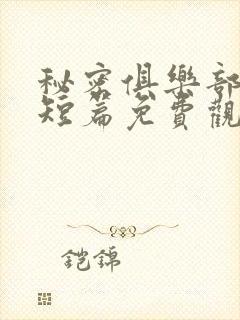 秘密俱樂部
短篇免費觀
铠錦